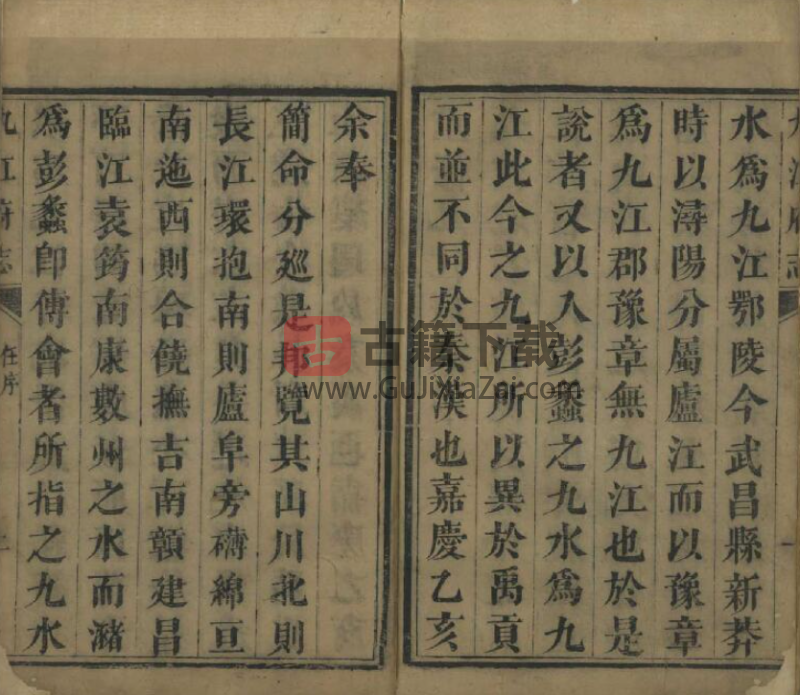 九江府志
水爲九江鄂陵今武昌縣新莽
時以潯陽分屬廬江而以豫章
爲九江郡豫章無九江也於是
說者又以入彭蠡之九水爲九
江此今之九江所以異於禹貢
而並不同於秦漢也嘉慶乙亥
余奉
簡命分廵是邦覽其山川北則
長江環抱南則廬阜旁礴綿亘
南迤西則合饒撫吉南贛建昌
臨江袁筠南康數州之水而瀦
爲彭蠡卽傳會者所指之九水
九江府志
任序
古籍下载
www.GuJiXiaZai.com